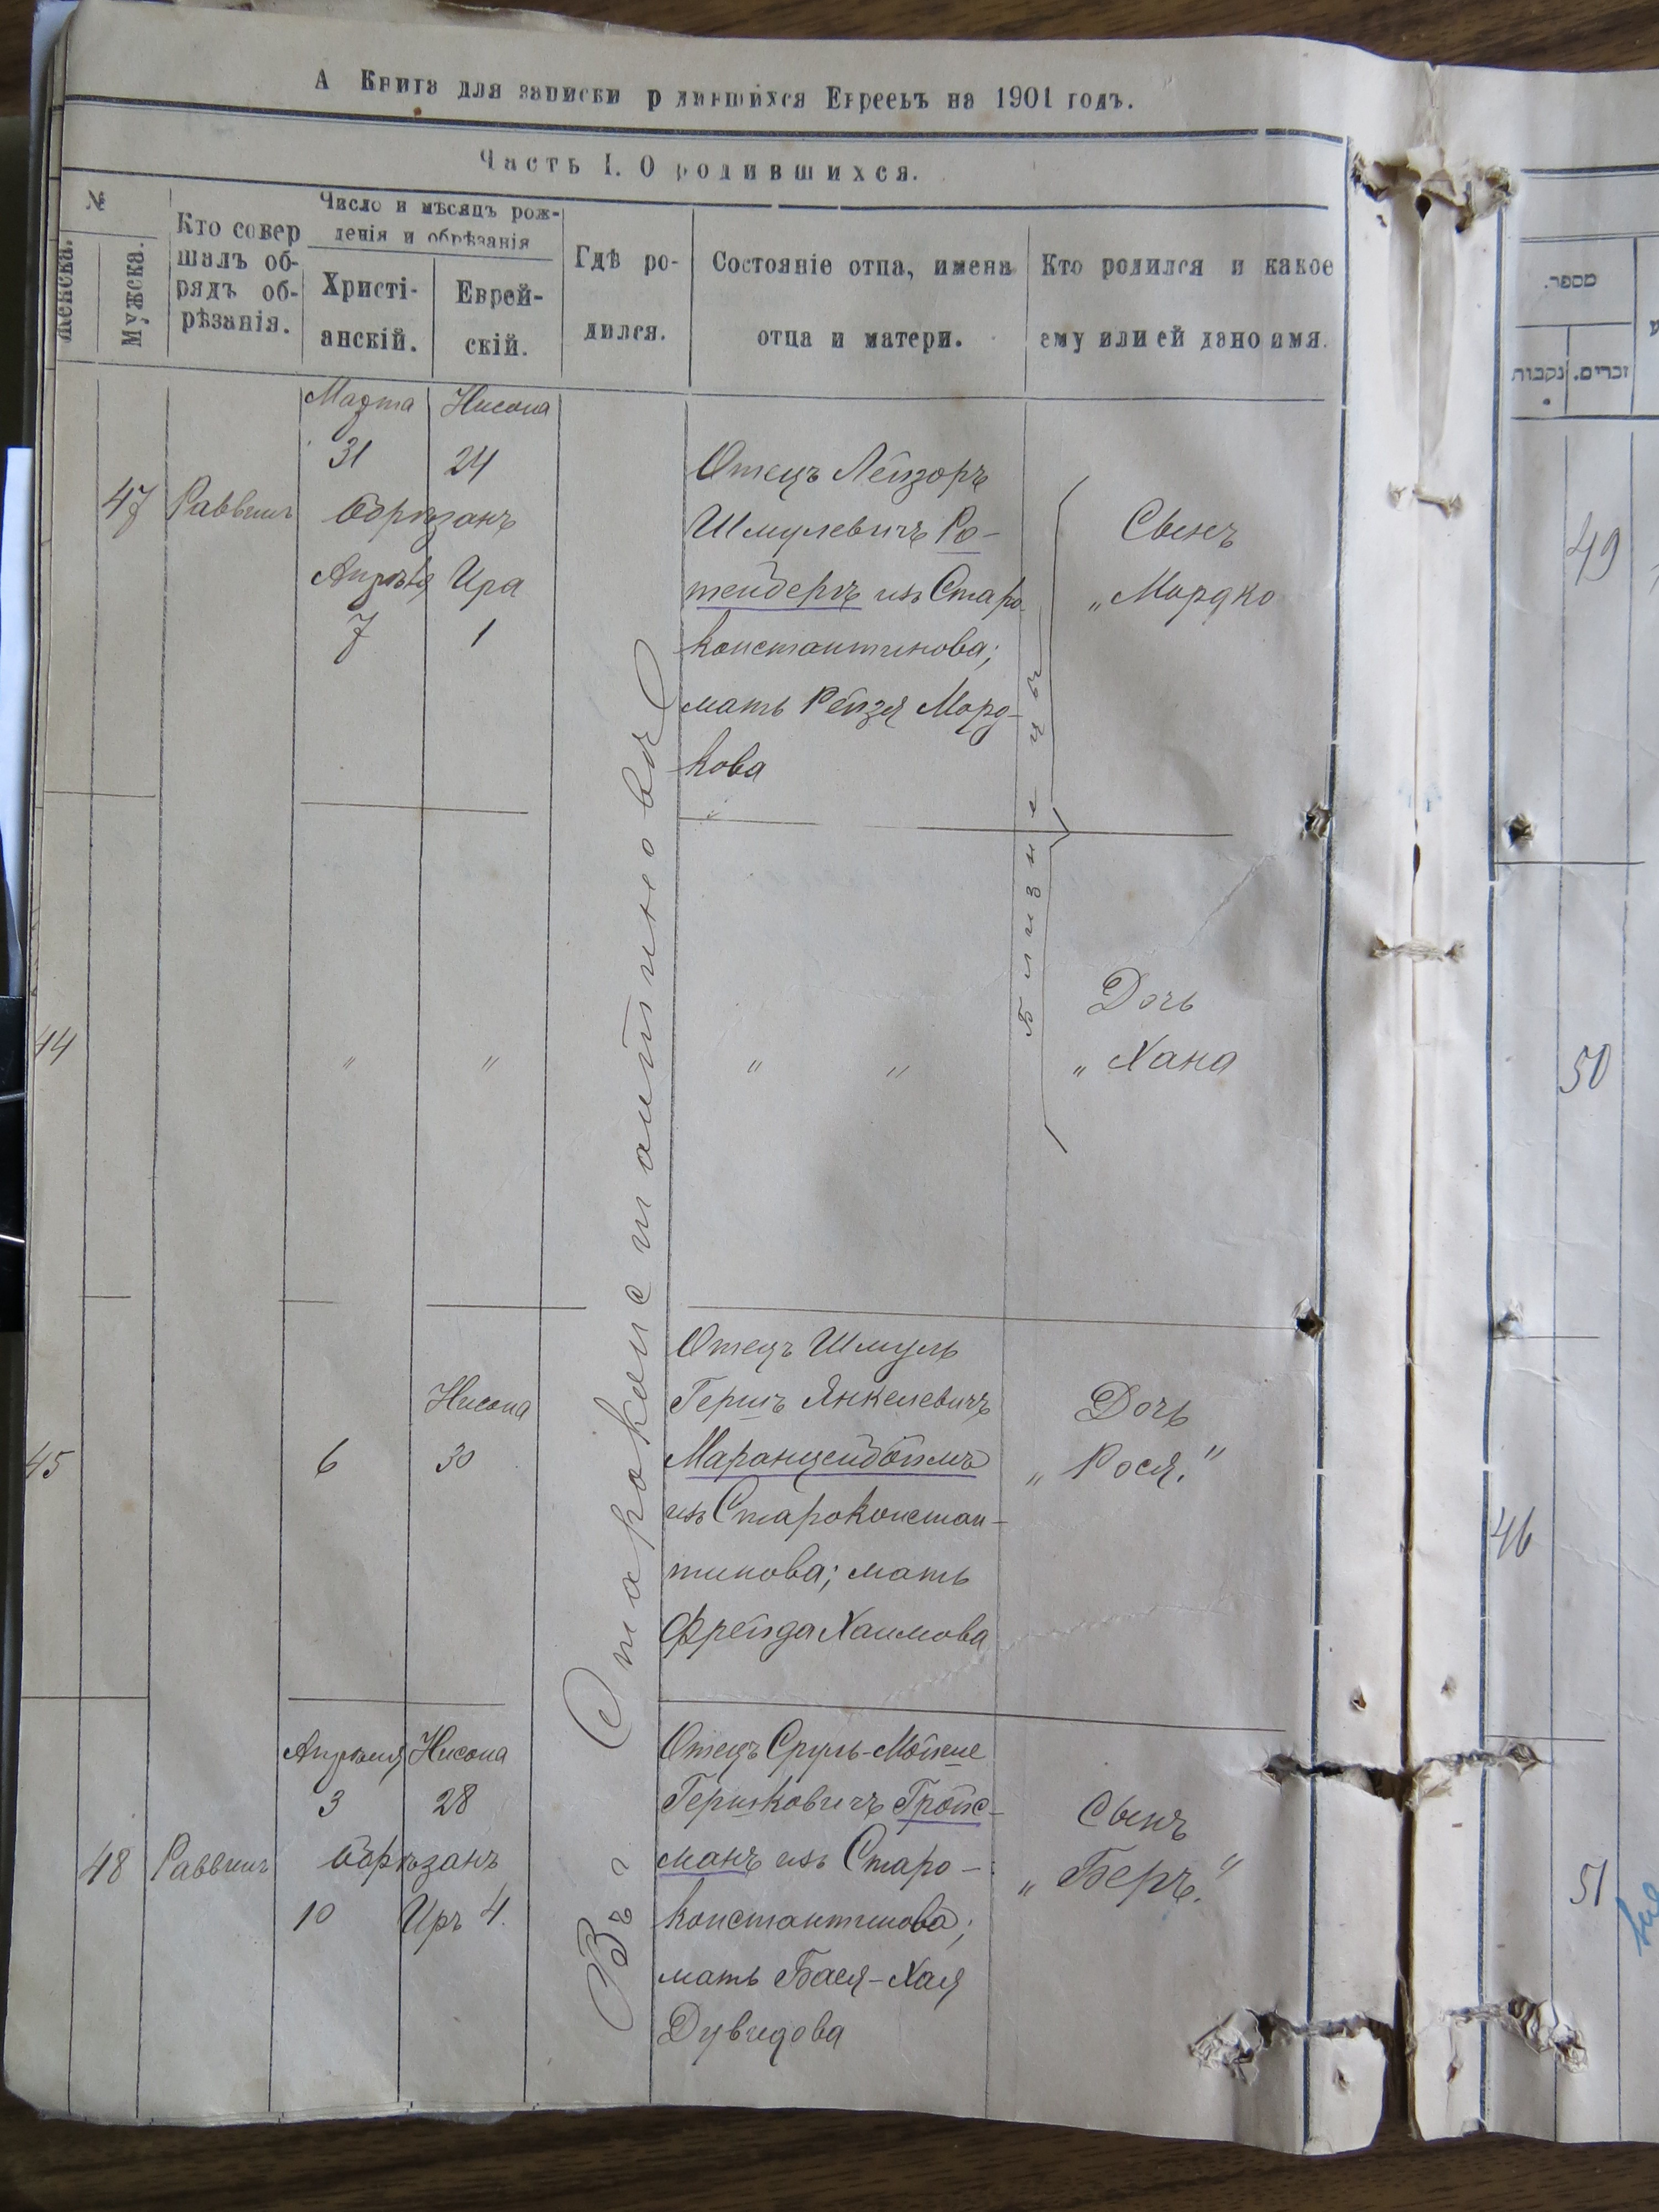 А Книга для записки родившихся Евреевъ на 1901 годъ.
Часть I. О родившихся.
№
Женска.
Мужска.
Кто совер
шалъ об-
рядъ об-
рѣзанія.
Число и мѣсяцъ рож-
денія и обрѣзанія
Христі-
анскій.
Еврей-
скій.
Гдѣ ро-
дился.
Состояніе отца, имена
отца и матери.
Кто родился и какое
ему или ей дано имя.
Въ г Староконстантиновѣ
47
Раввинъ
Марта Нисона
31 24
обрѣзанъ
Апрѣля Ира
7 1
Отецъ Лейзоръ
Шмулевичъ Ро-
тендеръ изъ Старо-
константинова;
мать Рейзя Морд-
кова
Близнецы
Сынъ
„Мордко
44
" "
" "
Дочь
„Хана
45
Нисона
6 30
Отецъ Шмуль
Гершъ Янкелевичъ
Маранценбоймъ
изъ Староконстан-
тинова; мать
Фрейда Хаимова
Дочь
„Рося."
48
Раввинъ
Апрѣля Нисона
3 28
обрѣзанъ
10 Иръ 4.
Отецъ Сруль-Мойше
Гершковичъ Гройс-
манъ изъ Старо-
константинова;
мать Бася-Хая
Дувидова
Сынъ
„Беръ."
מספר.
זכרים.
נקבות
49
50
46
51